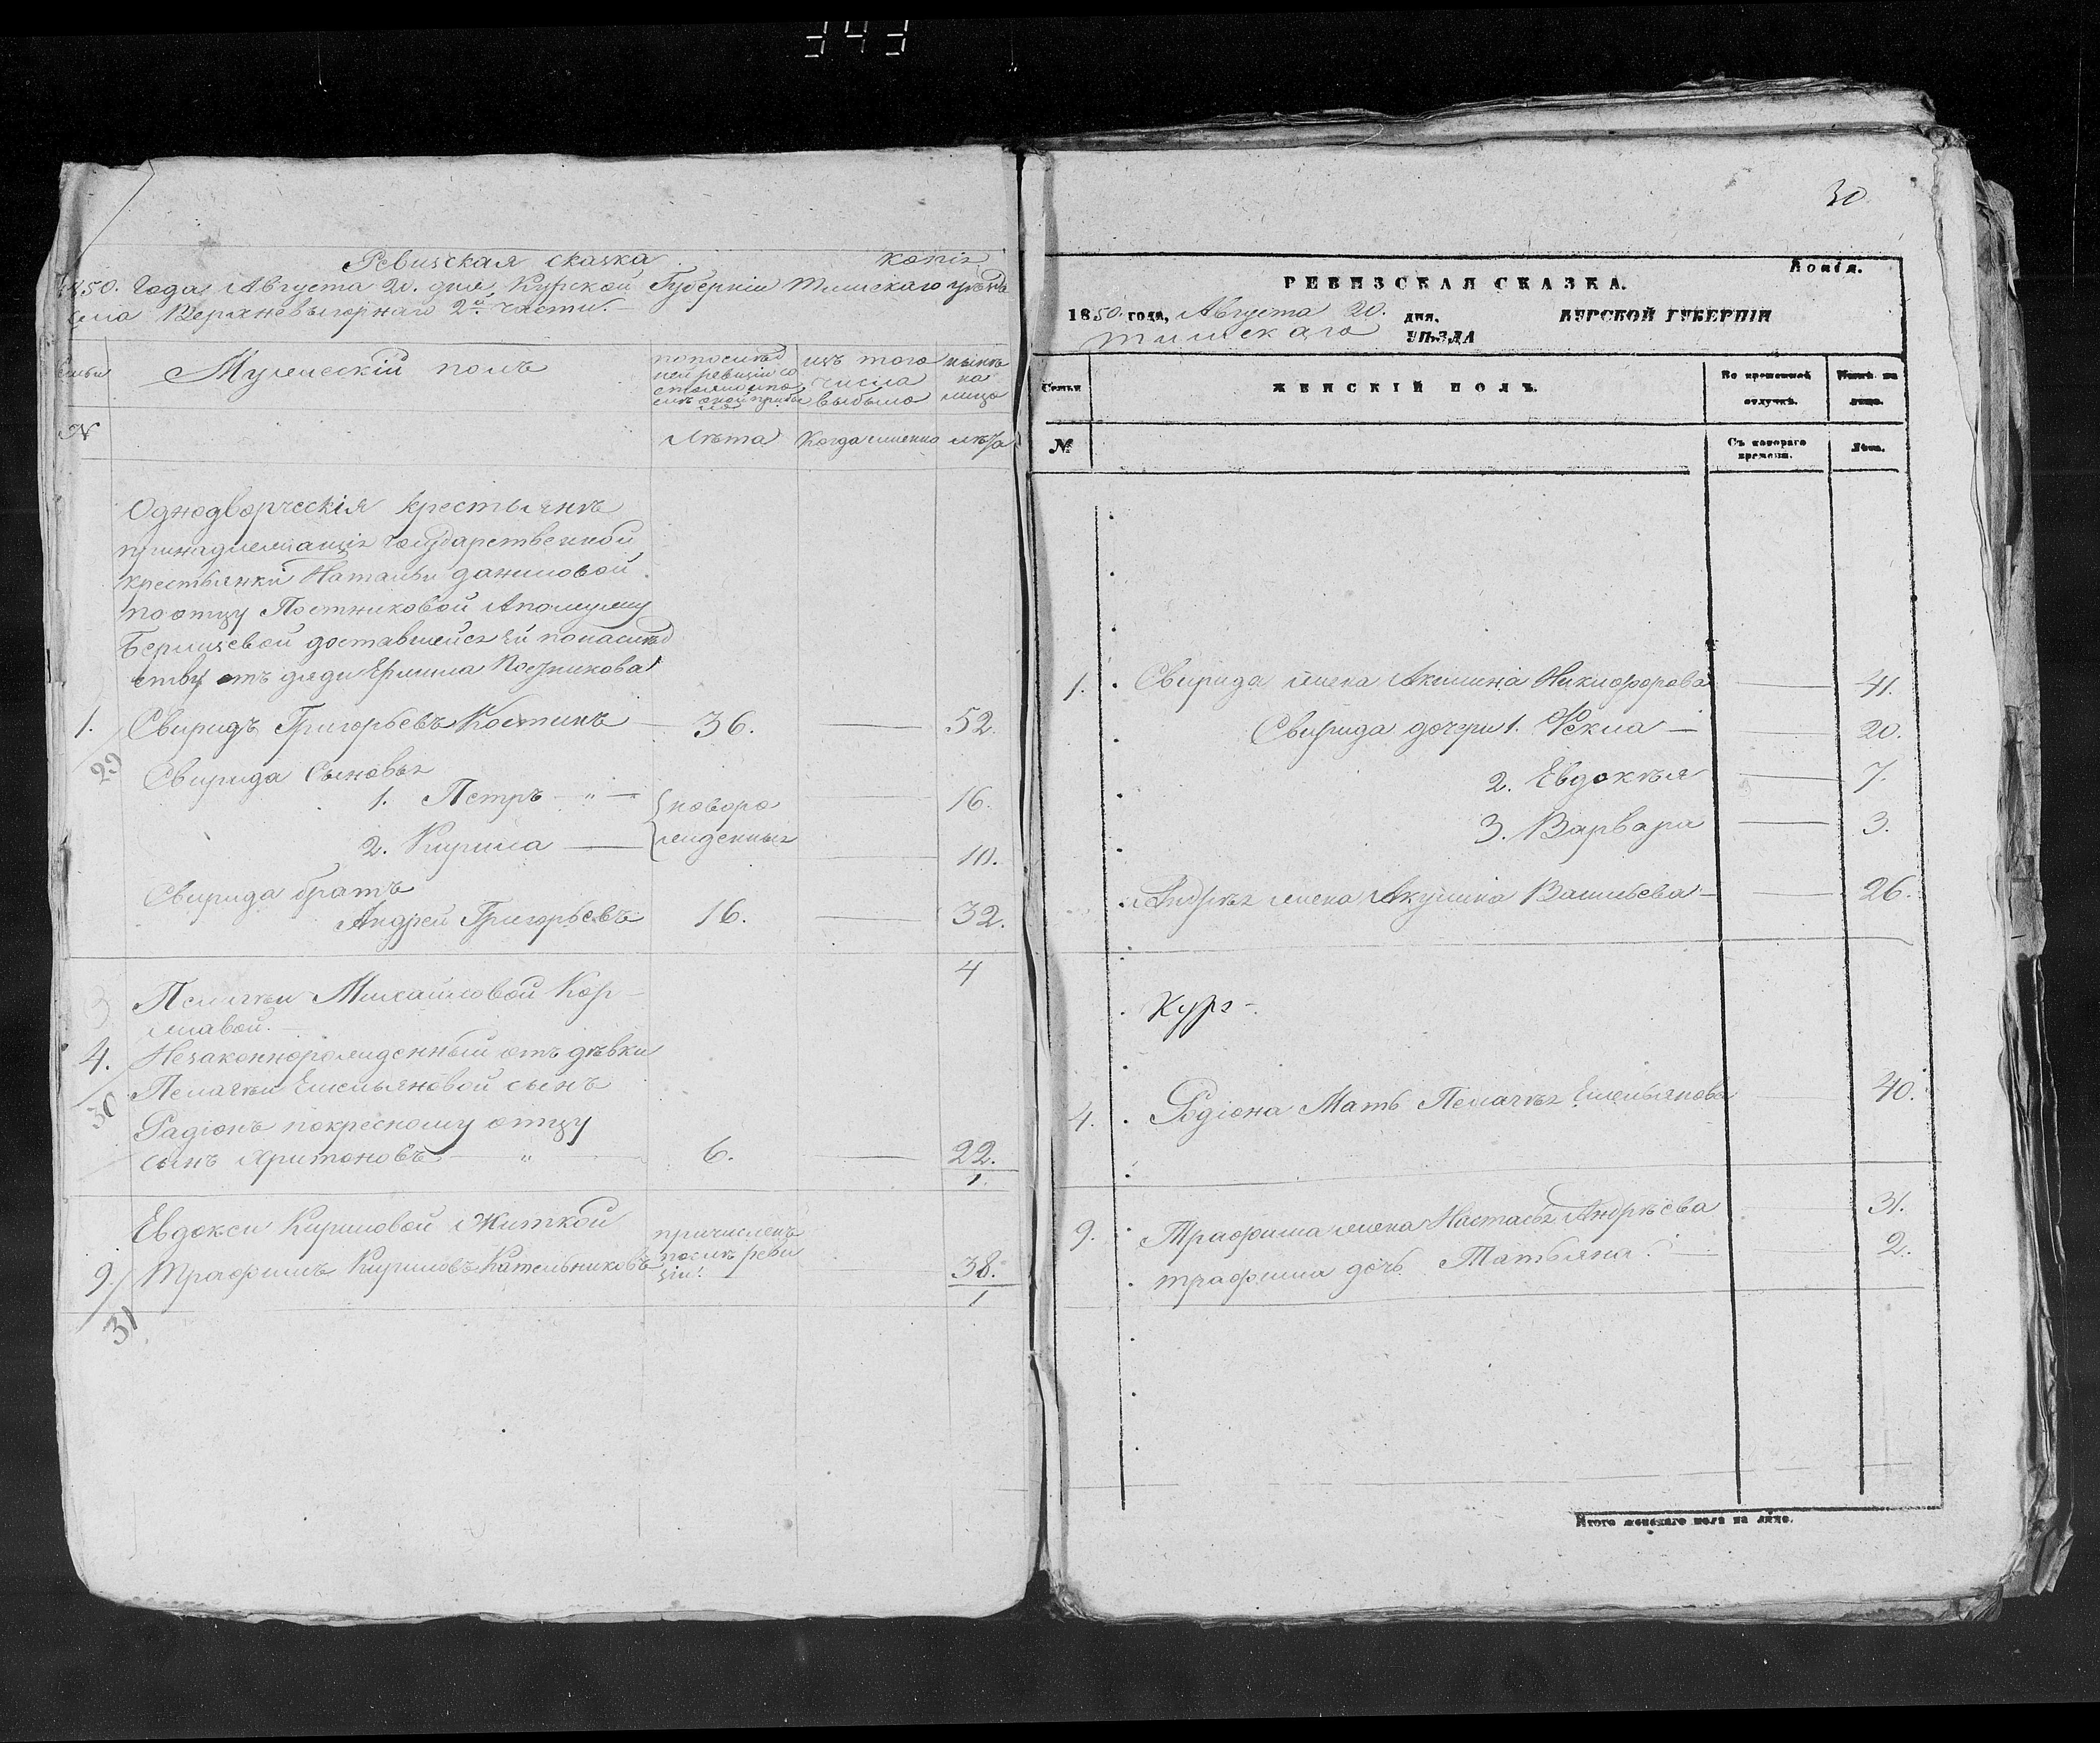 343
Ревизская сказка копія
1850. Года Августа 20. дня Курской Губерніи Тимскаго уѣзда
села Верхневыгорнаго 2й части.
семьи
Мужескій полъ
по послед
ней ревизіи со
стояло и по
слѣ оной прибы
ло
изъ того
числа
выбыло
нынѣ
на
лицо
N
Лѣта
Когда именно
лѣта
Однодворческія крестьянѣ
принадлежащія государственной
крестьянки Натальи Даниловой
по отцу Постниковой а по мужу
доставшейся ей по наслѣд
ству отъ дяди Постникова
1. Свиридъ Григорьевъ Костинъ — 36. — 52.
29
Свирида сыновья
1. Петръ — " — { новоро — 16.
2. Кирила — { жденныя — 10.
Свирида братъ
Андрей Григорьевъ 16. — 32.
4
Пелагѣи Михайловой Кор-
4. Незаконнорожденный отъ дѣвки
Пелагѣи Емельяновой сынъ
30
Радіонъ по кресному отцу
сынъ Аритоновъ — " — 6. — 22.
1
Евдокеи Кириловой Житкой
причисленъ
послѣ реви
зіи.
9. Трафимъ Кириловъ Кательниковъ — 38.
1
31
30
Копія.
РЕВИЗСКАЯ СКАЗКА.
1850. года, Августа 20. дня. КУРСКОЙ ГУБЕРНІИ
Тимскаго УѢЗДА
Семьи
ЖЕНСКІЙ ПОЛЪ.
Во временной
отлучкѣ.
Нынѣ на
лицо.
№
Съ котораго
времени.
Лѣта.
1. Свирида жена Акилина Никифорова — 41.
Свирида дочери 1. Фекла — — 20.
2. Евдокѣя — 7.
3. Варвара — 3.
Андрѣя жена Акулина Васильева — — 26.
4. Радіона Мать Пелагѣя Емельянова 40.
9. Трафима жена Настасья Андрѣева 31.
Трафима дочь Татьяна. — 2.
Итого женскаго пола на лицо.